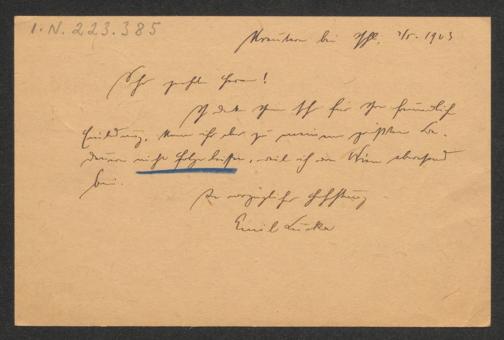 I.N. 223.385
bei Ischl. 1903
Sehr geehrter Herr!
Ich danke Ihnen sehr für Ihre freundliche
Einladung, kann ihr aber zu meinem größten Be-
dauern nicht Folge leisten, weil ich in Wien abwesend
bin.
In vorzüglicher Hochachtung
Emil Lucka